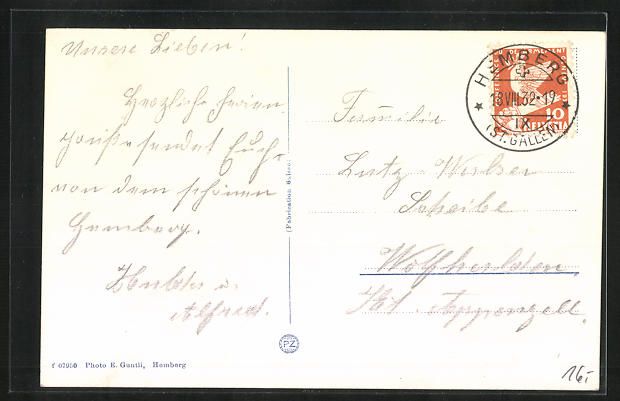 Unsere Lieben!
Herzliche Ferien
grüße sendet Euch
von dem schönen
Hemberg.
u.
Alfred.
(Fabrication Suisse)
HEMBERG
18.VIII.32-19
(ST. GALLEN)
10
HELVETIA
Familie
Lutz
Scheibe
Wolfhalden.
Kt. Appenzell.
PZ
f 07950 Photo E. Guntli, Hemberg
16.-